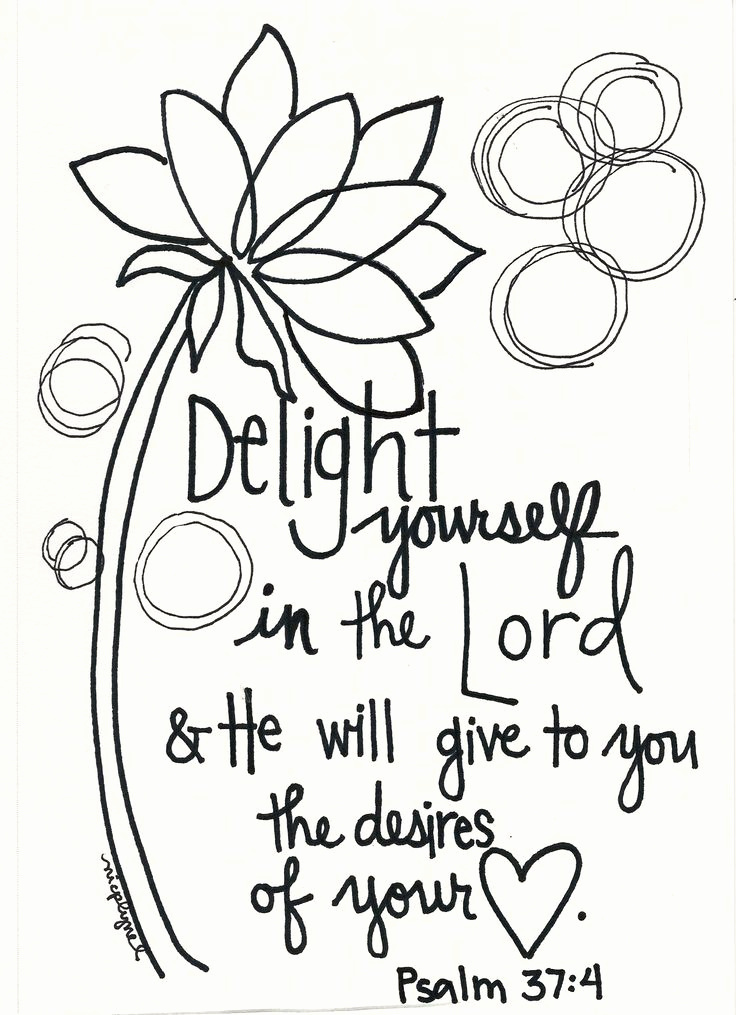 Delight
yourself
in the Lord
& He will give to you
the desires
of your ♥.
Psalm 37:4